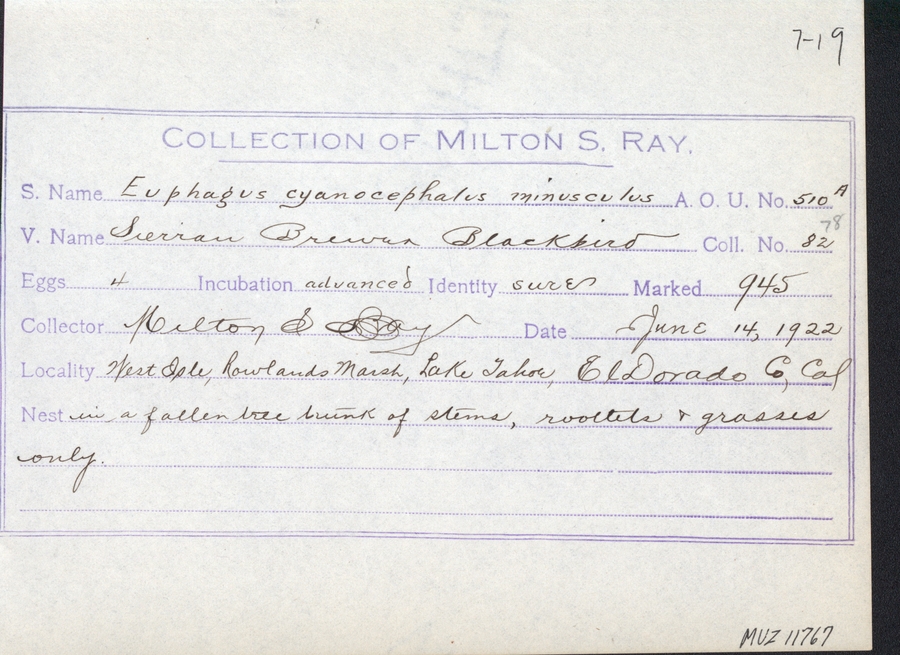 7-19
COLLECTION OF MILTON S. RAY.
S. Name Euphagus cyanocephalus minusculus A. O. U. No. 510 A
78
V. Name Sierran Brewer Blackbird Coll. No. 82
Eggs 4 Incubation advanced Identity sure Marked 945
Collector Milton S Ray Date June 14, 1922
Locality West Isle, Rowlands Marsh, Lake Tahoe, El Dorado Co, Cal
Nest in a fallen tree trunk of stems, rootlets & grasses
only.
MVZ 11767